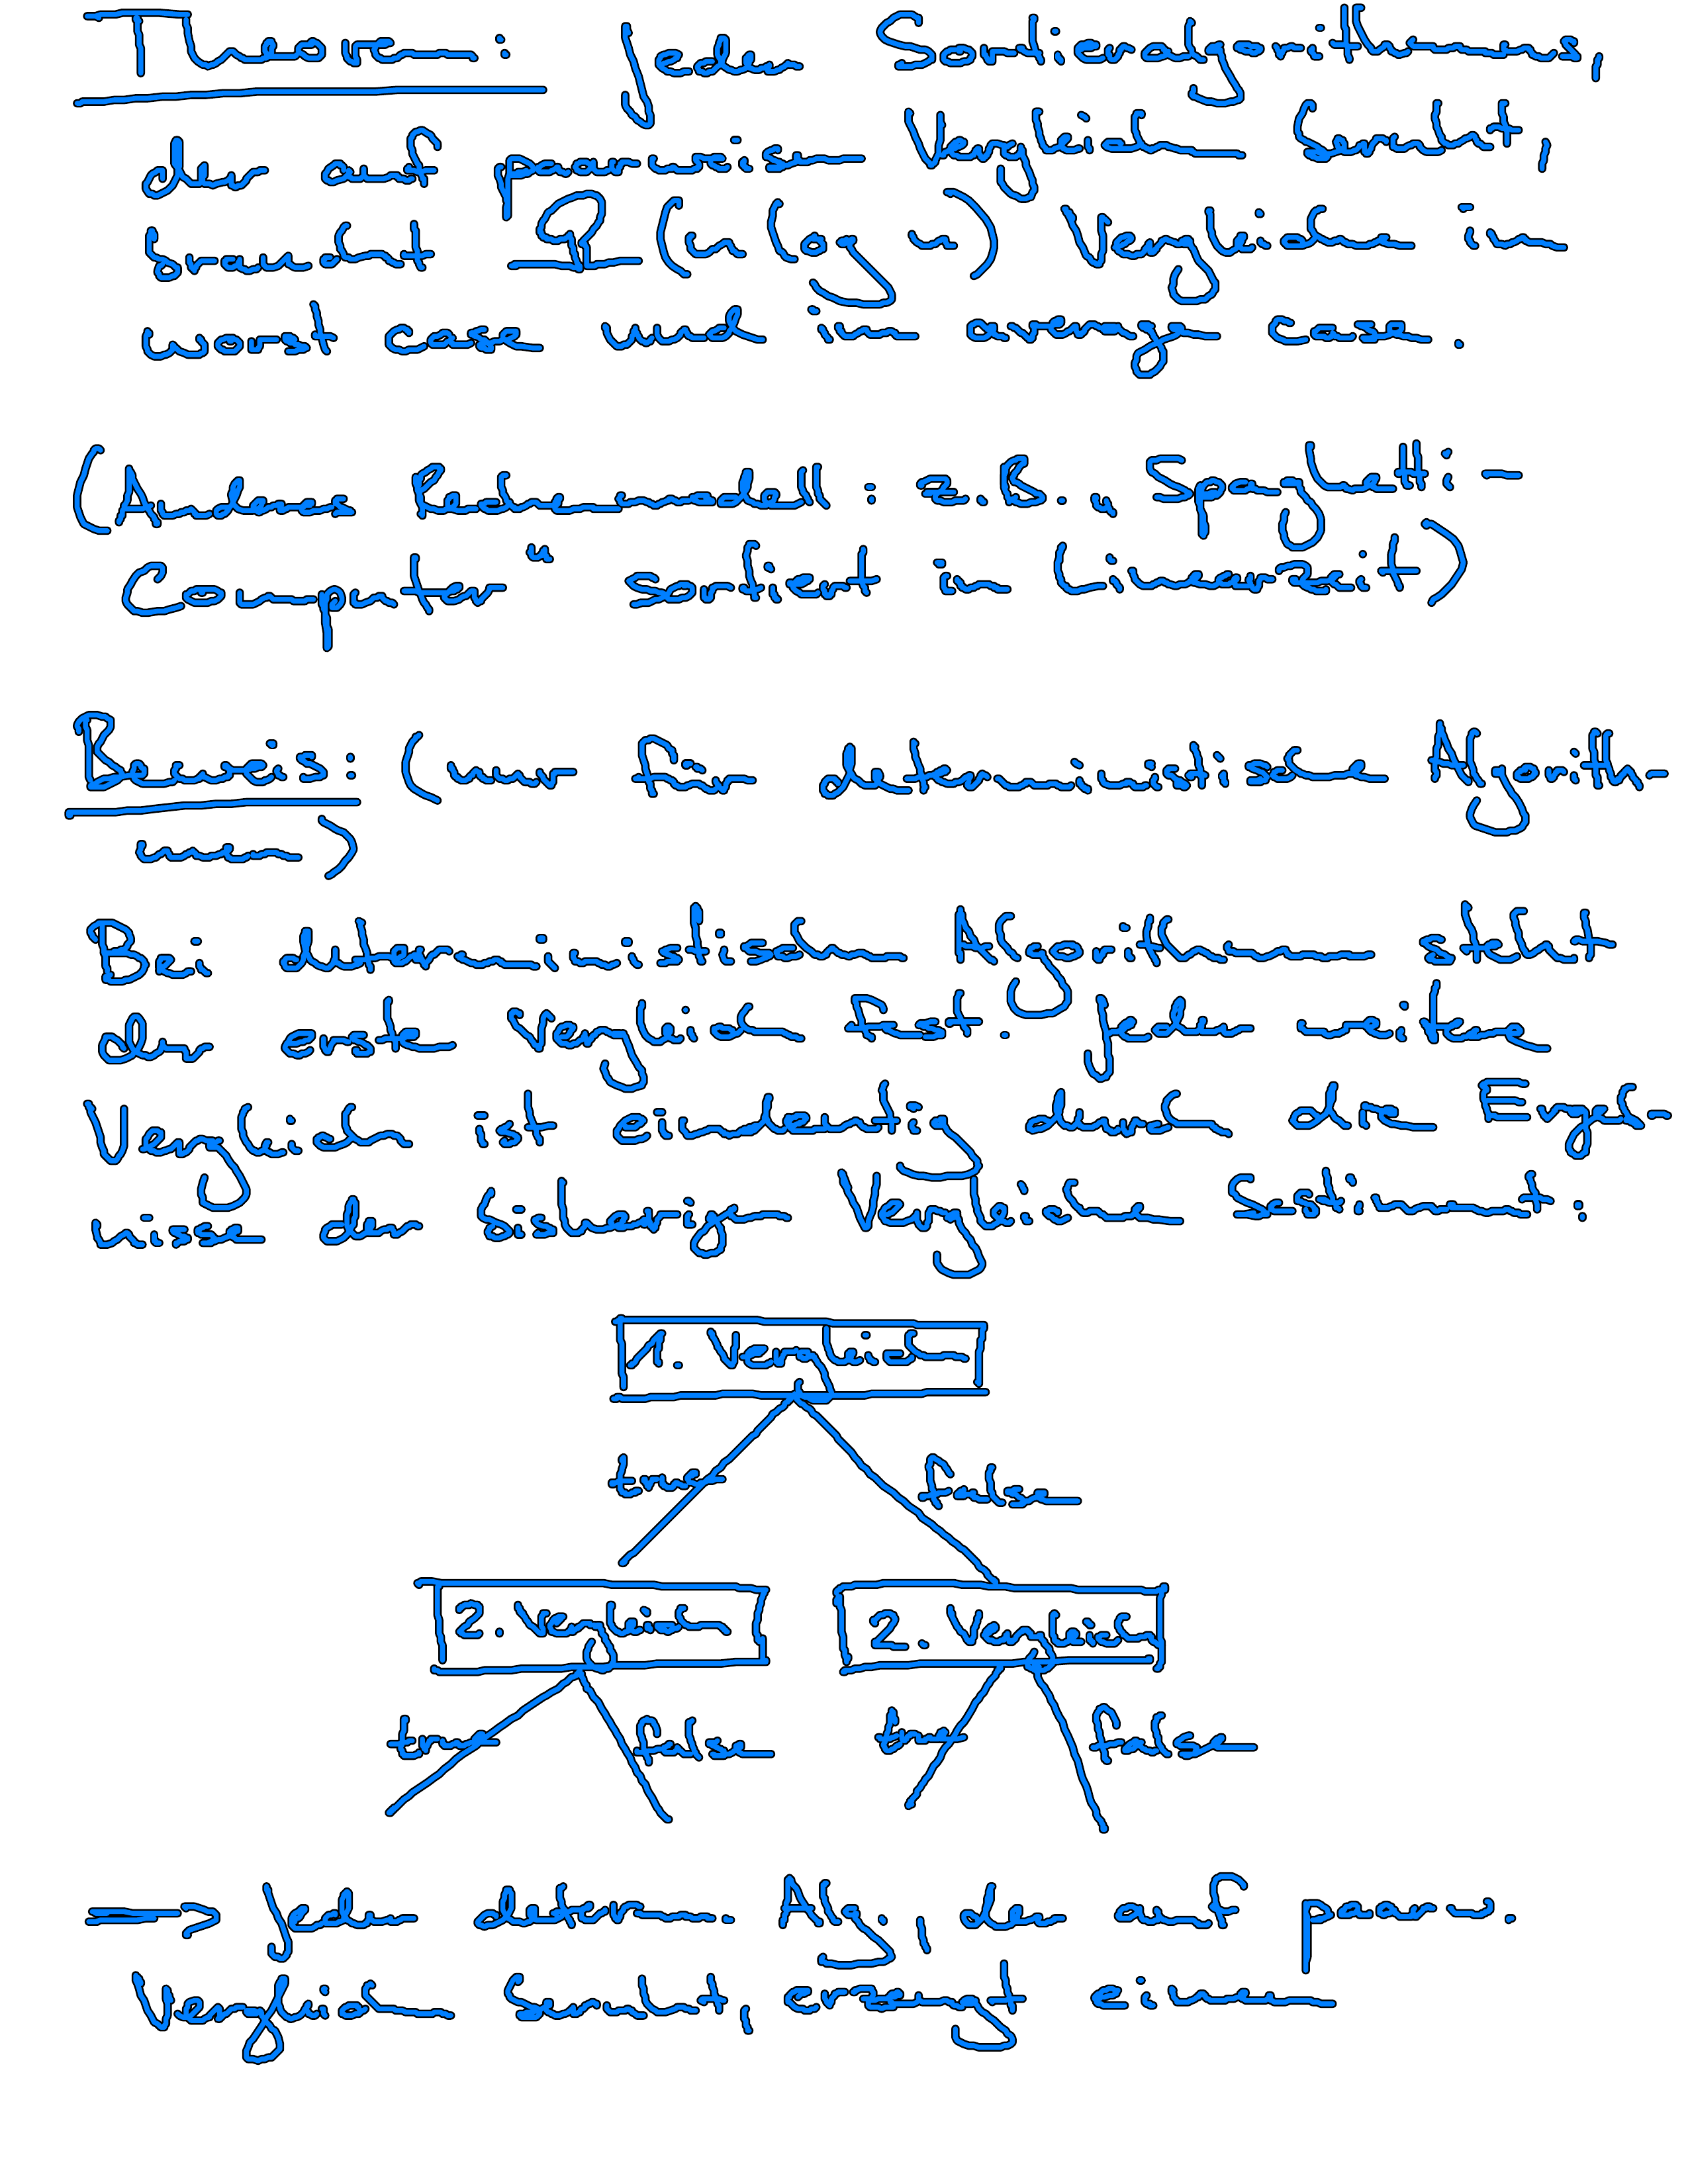 Theorem: Jeder Sortieralgorithmus,
der auf paarweisen Vergleich beruht,
braucht Ω(n log n) Vergleiche im
worst case und im average case.
(Anderes Rechenmodell: z.B. „Spaghetti-
Computer“ sortiert in Linearzeit)
Beweis: (nur für deterministische Algorith-
men)
Bei deterministischen Algorithmen steht
der erste Vergleich fest. Jeder weitere
Vergleich ist eindeutig durch die Ergeb-
nisse der bisherigen Vergleiche bestimmt:
1. Vergleich
true false
2. Vergleich 2. Vergleich
true false true false
=> Jeder determ. Alg., der auf paarw.
Vergleich beruht, erzeugt einen